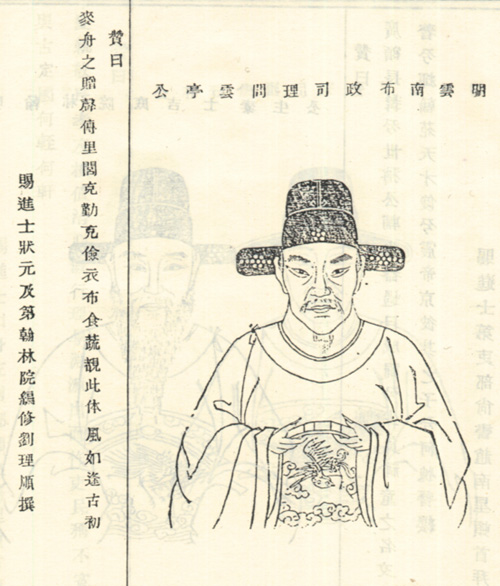 明雲南布政司理問雲亭公
贊曰
麥舟之贈聲傳里閭克勤克儉衣布食蔬覩此休風如逢古初
賜進士狀元及第翰林院編修劉理順撰